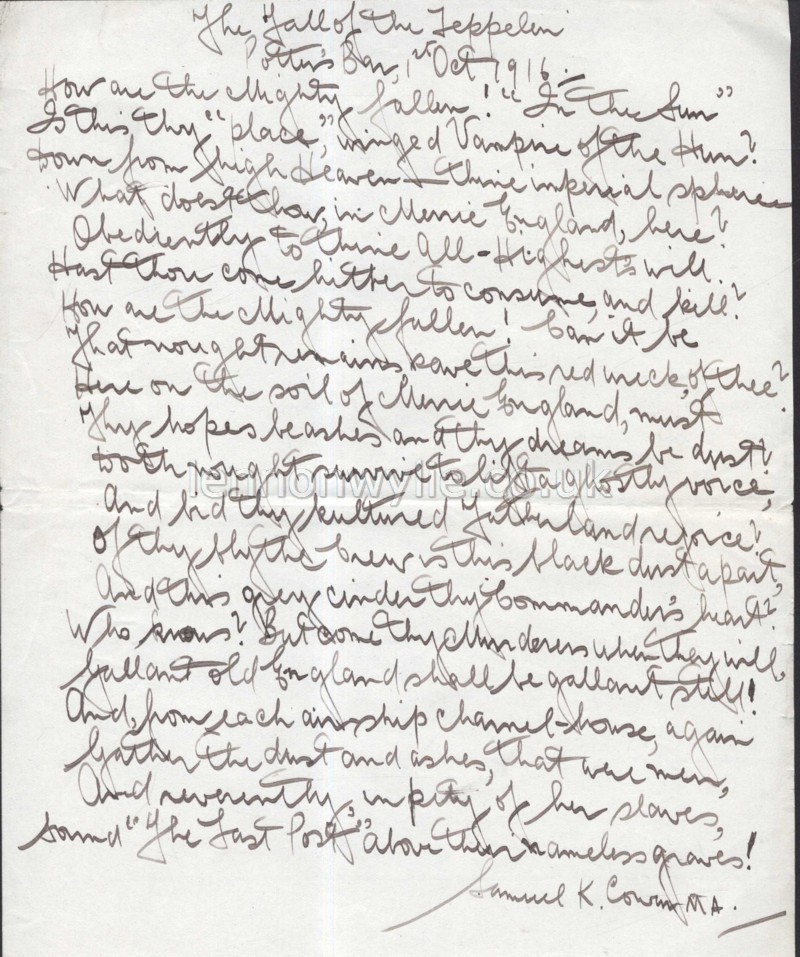 The Fall of the Zeppelin
Potters Bar, 1st Oct 1916.
How are the Mighty fallen! "In the Sun"
Is this thy "place", winged Vampire of the Hun?
Down from high Heaven – thine imperial sphere –
What doest thou, in Merrie England, here?
Obediently to thine All-Highest's will
Hast thou come hither to consume, and kill?
How are the Mighty fallen! Can it be
That nought remains save this red wreck, of thee?
Here on the soil of Merrie England, must
Thy hopes be ashes and thy dreams be dust?
Doth nought survive to lift a ghostly voice,
And bid thy kultured Fatherland rejoice?
Of thy blythe Crew is this black dust a part,
And this grey cinder thy Commander's heart?
Who knows? But come thy Murderers when they will,
Gallant old England shall be gallant still!
And, from each air-ship charnel-house, again
Gather the dust and ashes, that were men,
And reverently, in pity, of her slaves,
Sound "The Last Post" above their nameless graves!
Samuel K. Cowan MA.
lennonwylie.co.uk